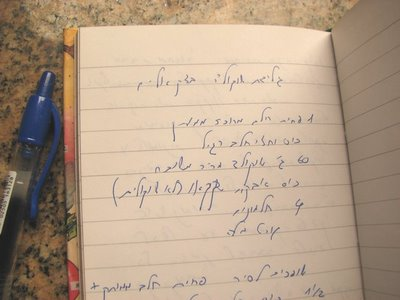 גלידת שוקולד בצק אולי
1 פחית חלב מרוכז ממותק
כוס וחצי חלב רגיל
60 ג' שוקולד מריר משובח
כוס אבקת קקאו (לא שוקולית)
4 חלמונים
קורט מלח
שופכים לסיר פחית חלב ממותק +
1/2 1